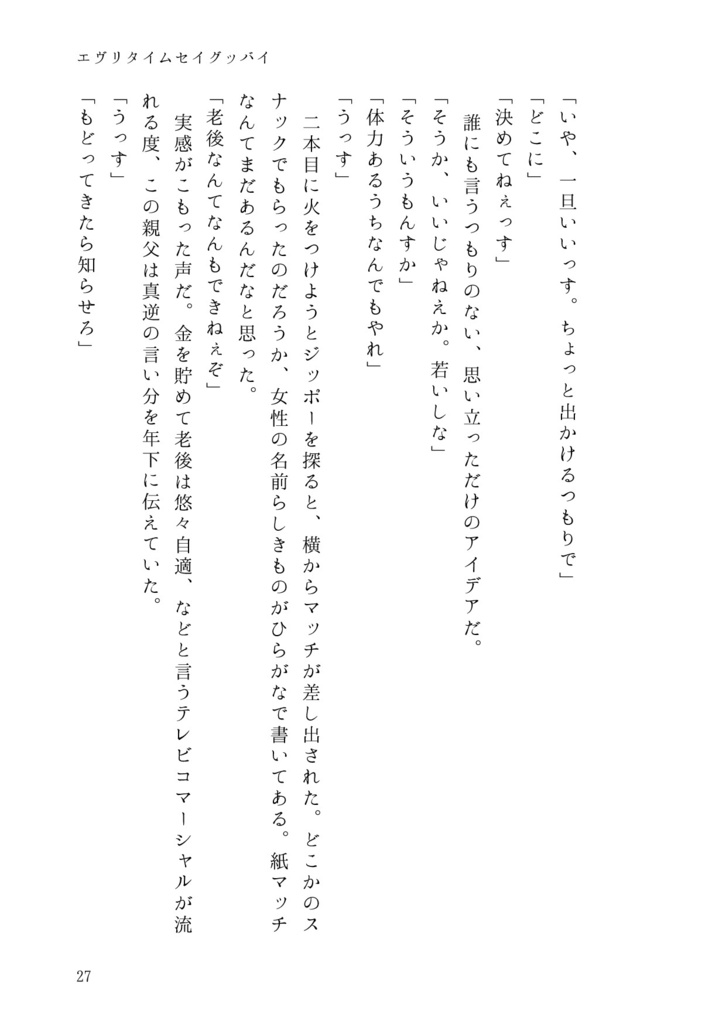 エヴリタイムセイグッバイ
「いや、一旦いいっす。ちょっと出かけるつもりで」
「どこに」
「決めてねぇっす」
　誰にも言うつもりのない、思い立っただけのアイデアだ。
「そうか、いいじゃねえか。若いしな」
「そういうもんすか」
「体力あるうちなんでもやれ」
「うっす」
　二本目に火をつけようとジッポーを探ると、横からマッチが差し出された。どこかのス
ナックでもらったのだろうか、女性の名前らしきものがひらがなで書いてある。紙マッチ
なんてまだあるんだなと思った。
「老後なんてなんもできねぇぞ」
　実感がこもった声だ。金を貯めて老後は悠々自適、などと言うテレビコマーシャルが流
れる度、この親父は真逆の言い分を年下に伝えていた。
「うっす」
「もどってきたら知らせろ」
27